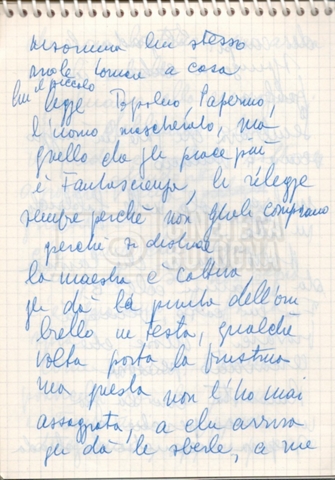 insomma lui stesso
vuole tornare a casa
lui il piccolo
legge Topolino Paperino,
l'uomo mascherato, ma
quello che gli piace più
è Fantascienza, li rilegge
sempre perchè non glieli comprano
perchè si distrae
la maestra è cattiva,
gli dà la punta dell'om
brello in testa, qualche
volta porta la frustina
ma questa non l'ho mai
assaggiata, a chi arriva
gli dà le sberle, a me